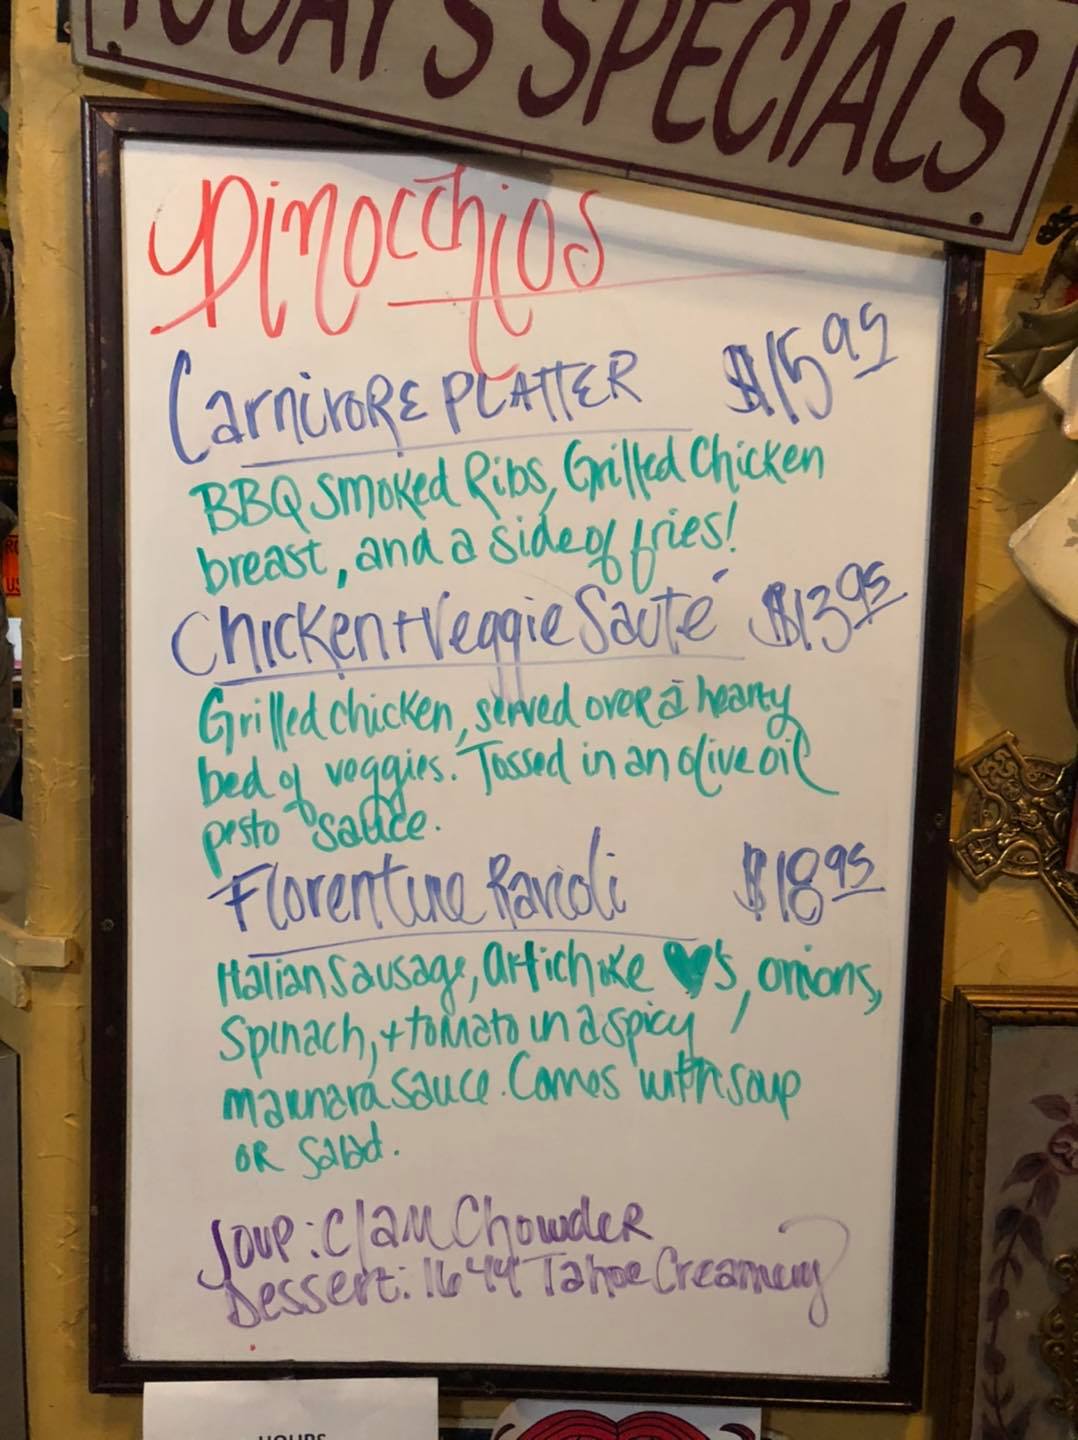 TODAY'S SPECIALS
Pinocchios
Carnivore Platter $15.95
BBQ Smoked Ribs, Grilled Chicken
breast, and a side of fries!
Chicken + Veggie Sauté $13.95
Grilled chicken, served over a hearty
bed of veggies. Tossed in an olive oil
pesto sauce.
Florentine Ravioli $18.95
Italian Sausage, Artichoke ♥'s, onions,
Spinach, + tomato in a spicy
marinara sauce. Comes with soup
or salad.
Soup: Clam Chowder
Dessert: Tahoe Creamery
HOURS